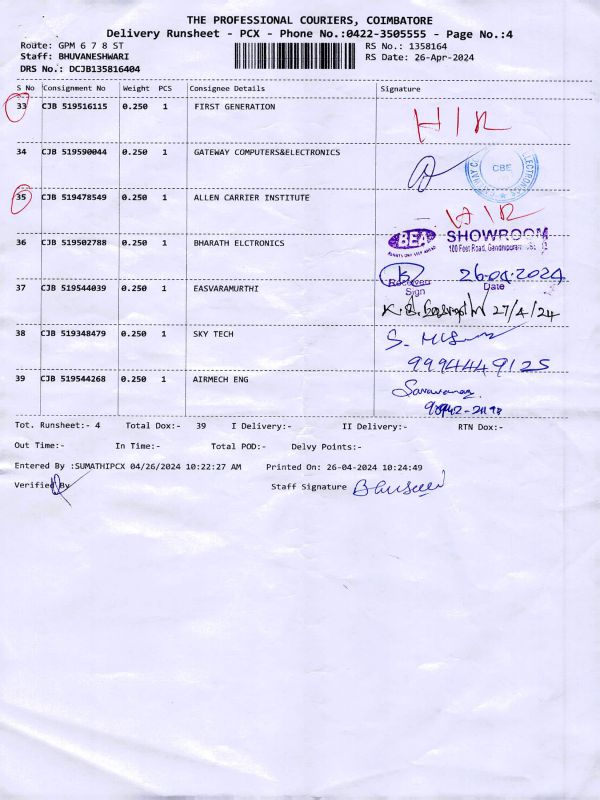 THE PROFESSIONAL COURIERS, COIMBATORE
Delivery Runsheet - PCX - Phone No.:0422-3505555 - Page No.:4
Route: GPM 6 7 8 ST RS No.: 1358164
Staff: BHUVANESHWARI RS Date: 26-Apr-2024
DRS No.: DCJB135816404
S No Consignment No Weight PCS Consignee Details Signature
33 CJB 519516115 0.250 1 FIRST GENERATION
HIR
34 CJB 519590044 0.250 1 GATEWAY COMPUTERS&ELECTRONICS
CBE
35 CJB 519478549 0.250 1 ALLEN CARRIER INSTITUTE
HIR
BEA SHOWROOM
100 Feet Road,
36 CJB 519502788 0.250 1 BHARATH ELCTRONICS
26.04.2024
Received Date
Sign
37 CJB 519544039 0.250 1 EASVARAMURTHI
27/4/24
38 CJB 519348479 0.250 1 SKY TECH
9994449125
39 CJB 519544268 0.250 1 AIRMECH ENG
Saravanan
Tot. Runsheet:- 4 Total Dox:- 39 I Delivery:- II Delivery:- RTN Dox:-
Out Time:- In Time:- Total POD:- Delvy Points:-
Entered By :SUMATHIPCX 04/26/2024 10:22:27 AM Printed On: 26-04-2024 10:24:49
Verified By Staff Signature